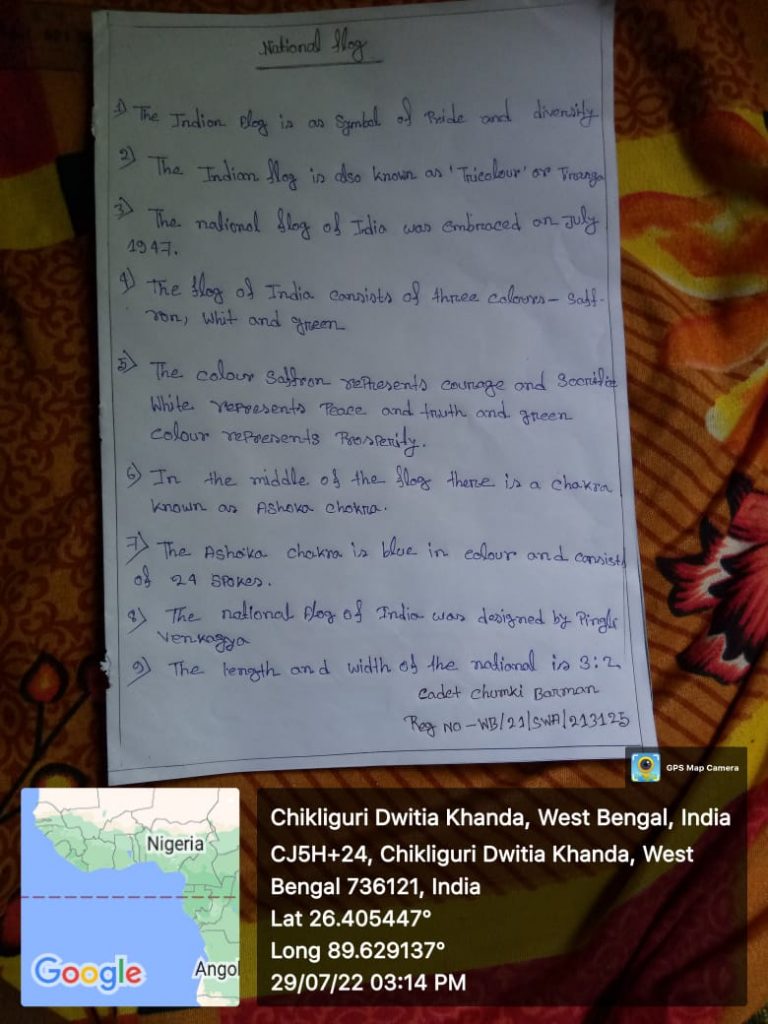 National flag
1) The Indian flag is as Symbol of Pride and diversity
2) The Indian flag is also known as 'Tricolour' or Tiranga
3) The national flag of Idia was embraced on July
1947.
4) The flag of India consists of three colours - Saff-
ron, Whit and green
5) The colour Saffron represents courage and Sacrifice
White represents Peace and truth and green
colour represents Prosperity.
6) In the middle of the flag there is a chakra
known as Ashoka chakra.
7) The Ashoka chakra is blue in colour and consists
of 24 spokes.
8) The national flag of India was designed by Pingli
Venkagya
9) The length and width of the national is 3:2
Cadet Chumki Barman
Reg No - WB/21/SWA/213125
GPS Map Camera
Nigeria
Angol
Google
Chikliguri Dwitia Khanda, West Bengal, India
CJ5H+24, Chikliguri Dwitia Khanda, West
Bengal 736121, India
Lat 26.405447°
Long 89.629137°
29/07/22 03:14 PM